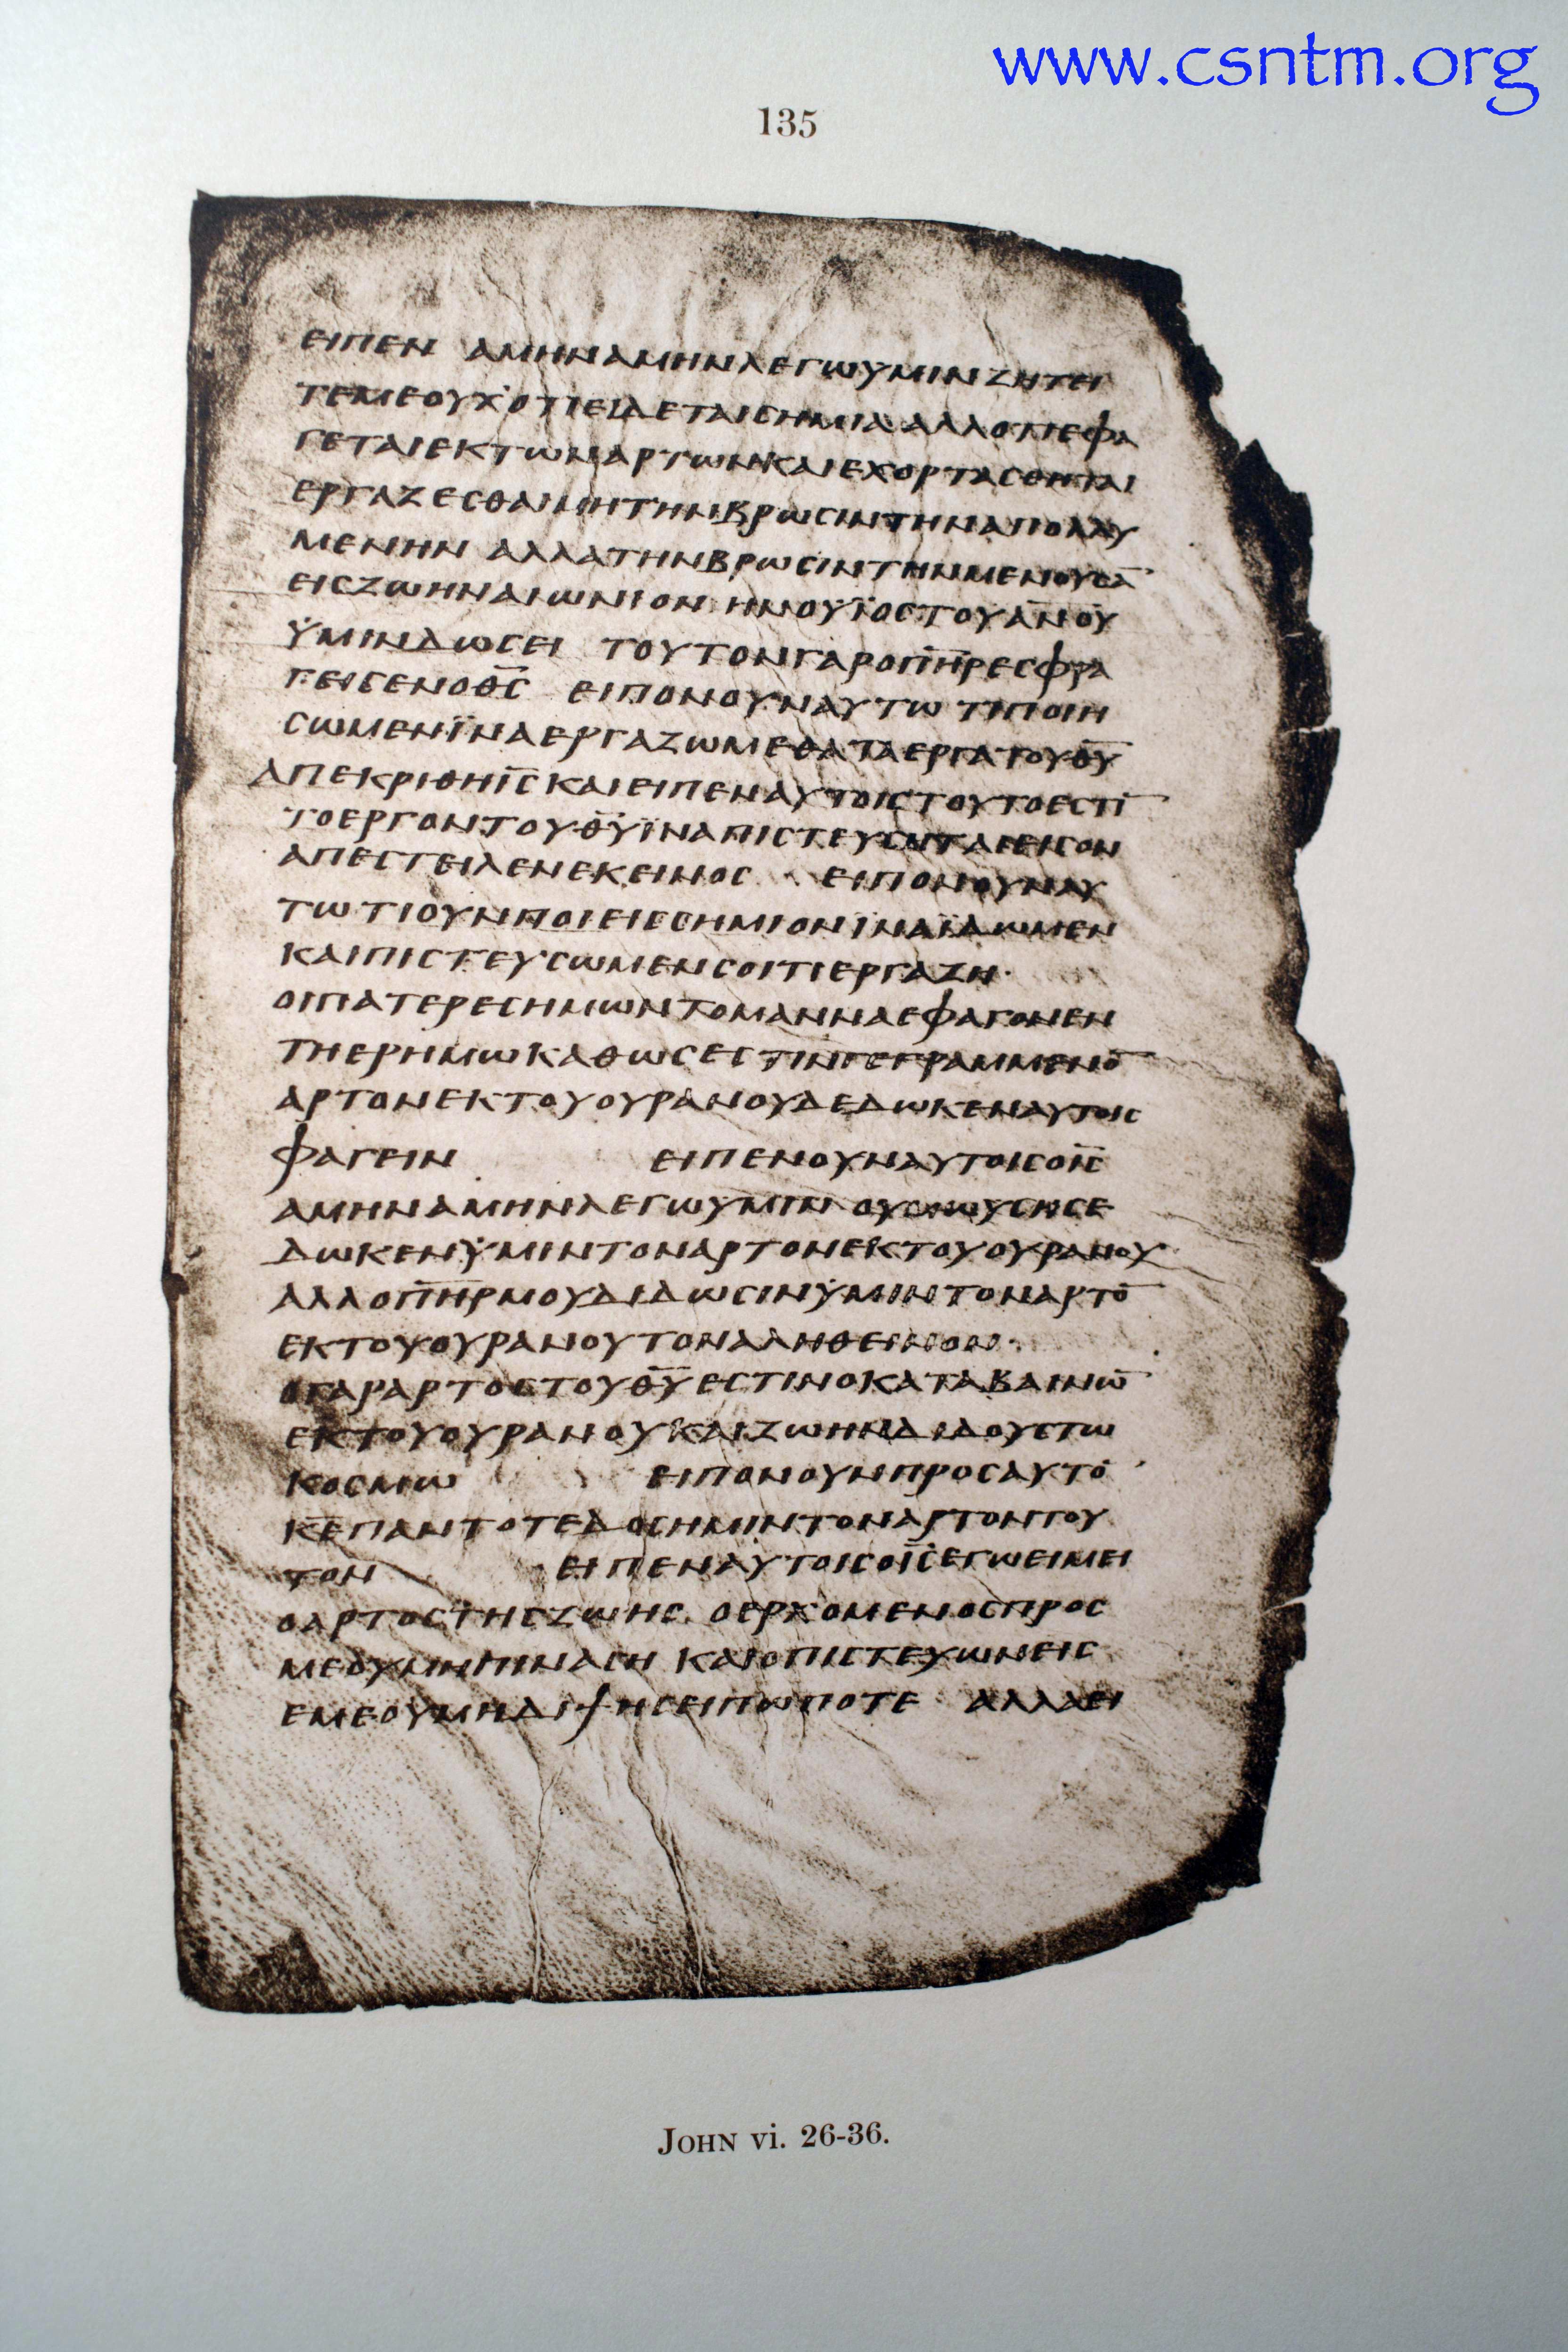 www.csntm.org
135
ΕΙΠΕΝ ΑΜΗΝΑΜΗΝΛΕΓΩΥΜΙΝΖΗΤΕΙ
ΤΕΜΕΟΥΧΟΤΙΕΙΔΕΤΑΙϹΗΜΙΑΑΛΛΟΤΙΕΦΑ
ΓΕΤΑΙΕΚΤΩΝΑΡΤΩΝΚΑΙΕΧΟΡΤΑϹΘΗΤΑΙ
ΕΡΓΑΖΕϹΘΑΙΜΗΤΗΝΒΡΩϹΙΝΤΗΝΑΠΟΛΛΥ
ΜΕΝΗΝ ΑΛΛΑΤΗΝΒΡΩϹΙΝΤΗΝΜΕΝΟΥϹΑ̅
ΕΙϹΖΩΗΝΑΙΩΝΙΟΝ ΗΝΟΥΪΟϹΤΟΥΑ̅Ν̅Ο̅Υ̅
ΫΜΙΝΔΩϹΕΙ ΤΟΥΤΟΝΓΑΡΟΠ̅Η̅Ρ̅ΕϹΦΡΑ
ΓΕΙϹΕΝΟΘ̅Ϲ̅ ΕΙΠΟΝΟΥΝΑΥΤΩ ΤΙΠΟΙΗ
ϹΩΜΕΝΪΝΑΕΡΓΑΖΩΜΕΘΑΤΑΕΡΓΑΤΟΥΘ̅Υ̅
ΑΠΕΚΡΙΘΗΙ̅Ϲ̅ΚΑΙΕΙΠΕΝΑΥΤΟΙϹΤΟΥΤΟΕϹΤΙ̅
ΤΟΕΡΓΟΝΤΟΥΘ̅Υ̅ΪΝΑΠΙϹΤΕΥϹΗΤΑΙΕΙϹΟΝ
ΑΠΕϹΤΕΙΛΕΝΕΚΕΙΝΟϹ ΕΙΠΟΝΟΥΝΑΥ
ΤΩΤΙΟΥΝΠΟΙΕΙϹϹΗΜΙΟΝΪΝΑΪΔΩΜΕΝ
ΚΑΙΠΙϹΤΕΥϹΩΜΕΝϹΟΙΤΙΕΡΓΑΖΗ·
ΟΙΠΑΤΕΡΕϹΗΜΩΝΤΟΜΑΝΝΑΕΦΑΓΟΝΕΝ
ΤΗΕΡΗΜΩΚΑΘΩϹΕϹΤΙΝΓΕΓΡΑΜΜΕΝΟ̅
ΑΡΤΟΝΕΚΤΟΥΟΥΡΑΝΟΥΔΕΔΩΚΕΝΑΥΤΟΙϹ
ΦΑΓΕΙΝ ΕΙΠΕΝΟΥΝΑΥΤΟΙϹΟΙ̅Ϲ̅
ΑΜΗΝΑΜΗΝΛΕΓΩΥΜΙΝ ΟΥΜΩΥϹΗϹΕ
ΔΩΚΕΝΫΜΙΝΤΟΝΑΡΤΟΝΕΚΤΟΥΟΥΡΑΝΟΥ
ΑΛΛΟΠ̅Η̅Ρ̅ΜΟΥΔΙΔΩϹΙΝΫΜΙΝΤΟΝΑΡΤΟ̅
ΕΚΤΟΥΟΥΡΑΝΟΥΤΟΝΑΛΗΘΕΙΝΟΝ·
ΟΓΑΡΑΡΤΟϹΤΟΥΘ̅Υ̅ΕϹΤΙΝΟΚΑΤΑΒΑΙΝΩ̅
ΕΚΤΟΥΟΥΡΑΝΟΥΚΑΙΖΩΗΝΔΙΔΟΥϹΤΩ
ΚΟϹΜΩ ΕΙΠΟΝΟΥΝΠΡΟϹΑΥΤΟ̅
Κ̅Ε̅ΠΑΝΤΟΤΕΔΟϹΗΜΙΝΤΟΝΑΡΤΟΝΤΟΥ
ΤΟΝ ΕΙΠΕΝΑΥΤΟΙϹΟΙ̅Ϲ̅ΕΓΩΕΙΜΕΙ
ΟΑΡΤΟϹΤΗϹΖΩΗϹ ΟΕΡΧΟΜΕΝΟϹΠΡΟϹ
ΜΕΟΥΜΗΠΙΝΑϹΗ ΚΑΙΟΠΙϹΤΕΥΩΝΕΙϹ
ΕΜΕΟΥΜΗΔΙΨΗϹΕΙΠΩΠΟΤΕ ΑΛΛΑΕΙ
JOHN vi. 26-36.